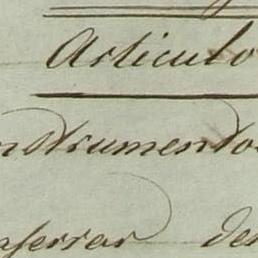 Articulo
nstrumentos
nserrar des